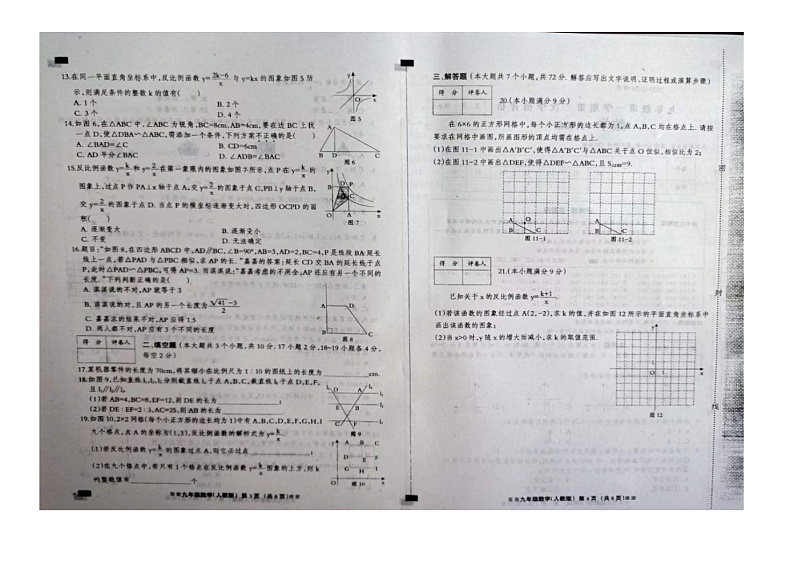 13.在同一平面直角坐标系中,反比例函数 y=2k-6/x 与 y=kx 的图象如图5所
示,则满足条件的整数 k 的值有( )
A. 1个 B. 2个
C. 3个 D. 4个
图5
14.如图6,在△ABC 中,∠ABC 为锐角,BC=8cm,AB=4cm,要在边 BC 上找
一点 D,使△DBA∽△ABC,需添加一个条件,下列方案不正确的是( )
A. ∠BAD=∠C B. CD=6cm
C. AD 平分∠BAC D. ∠ADB=∠BAC
图6
15.反比例函数 y=k/x 和 y=2/x 在第一象限内的图象如图7所示,点 P 在 y=k/x 的
图象上,过点 P 作 PA⊥x 轴于点 A,交 y=2/x 的图象于点 C,PB⊥y 轴于点 B,
交 y=2/x 的图象于点 D. 当点 P 的横坐标逐渐变大时,四边形 OCPD 的面
积( )
A. 逐渐变大 B. 逐渐变小
C. 不变 D. 无法确定
图7
16.题目:“如图8,在四边形 ABCD 中,AD∥BC,∠B=90°,AB=3,AD=2,BC=4,P 是线段 BA 延长
线上一点,若△PAD 与△PBC 相似,求 AP 的长.”嘉嘉的答案:延长 CD 交 BA 的延长线于点
P,此时△PAD∽△PBC,可得 AP=3. 而淇淇说:“嘉嘉考虑的不周全,AP 还应有另一个不同的
长度.”下列判断正确的是( )
A. 淇淇说的不对,AP 就等于3
B. 淇淇说的对,且 AP 的另一个长度为 √41-3/2
C. 嘉嘉求的结果不对,AP 应得1.5
D. 两人都不对,AP 应有3个不同的长度
图8
得 分 评卷人
二、填空题(本大题共3个小题,共10分. 17小题2分,18~19小题各4分,
每空2分)
17.某机器零件的长度为70cm,将其缩小在比例尺为1∶10的图纸上的长度为 cm.
18.如图9,已知直线 l₁,l₂,l₃分别截直线 l₄于点 A,B,C,截直线 l₅于点 D,E,F,
且 l₁∥l₂∥l₃.
(1)若 AB=4,BC=8,EF=12,则 DE 的长为 ;
(2)若 DE∶EF=2∶3,AC=25,则 AB 的长为 .
图9
19.如图10,2×2网格(每个小正方形的边长均为1)中有 A,B,C,D,E,F,G,H,I
九个格点,点 A 的坐标为(1,3),反比例函数的解析式为 y=k/x.
(1)若反比例函数 y=k/x 的图象过点 A,则它必过点 ;
(2)在九个格点中,若只有1个格点在反比例函数 y=k/x 图象的上方,则 k
的整数值有 个.
图10
※※九年级数学(人教版) 第3页 (共8页)※※
三、解答题(本大题共7个小题,共72分. 解答应写出文字说明、证明过程或演算步骤)
得 分 评卷人
20.(本小题满分9分)
在6×6的正方形网格中,每个小正方形的边长都为1,点 A,B,C 均在格点上. 请按
要求在网格中画图,所画图形的顶点均需在格点上.
(1)在图11-1中画出△A'B'C',使得△A'B'C'与△ABC 关于点 O 位似,相似比为2;
(2)在图11-2中画出△DEF,使得△DEF∽△ABC,且 S△DEF=9.
图11-1 图11-2
得 分 评卷人
21.(本小题满分9分)
已知关于 x 的反比例函数 y=k+1/x.
(1)若该函数的图象经过点 A(2,-2),求 k 的值,并在如图12所示的平面直角坐标系中
画出该函数的图象;
(2)当 x>0时,y 随 x 的增大而减小,求 k 的取值范围.
图12
※※九年级数学(人教版) 第4页 (共8页)※※
密
封
线